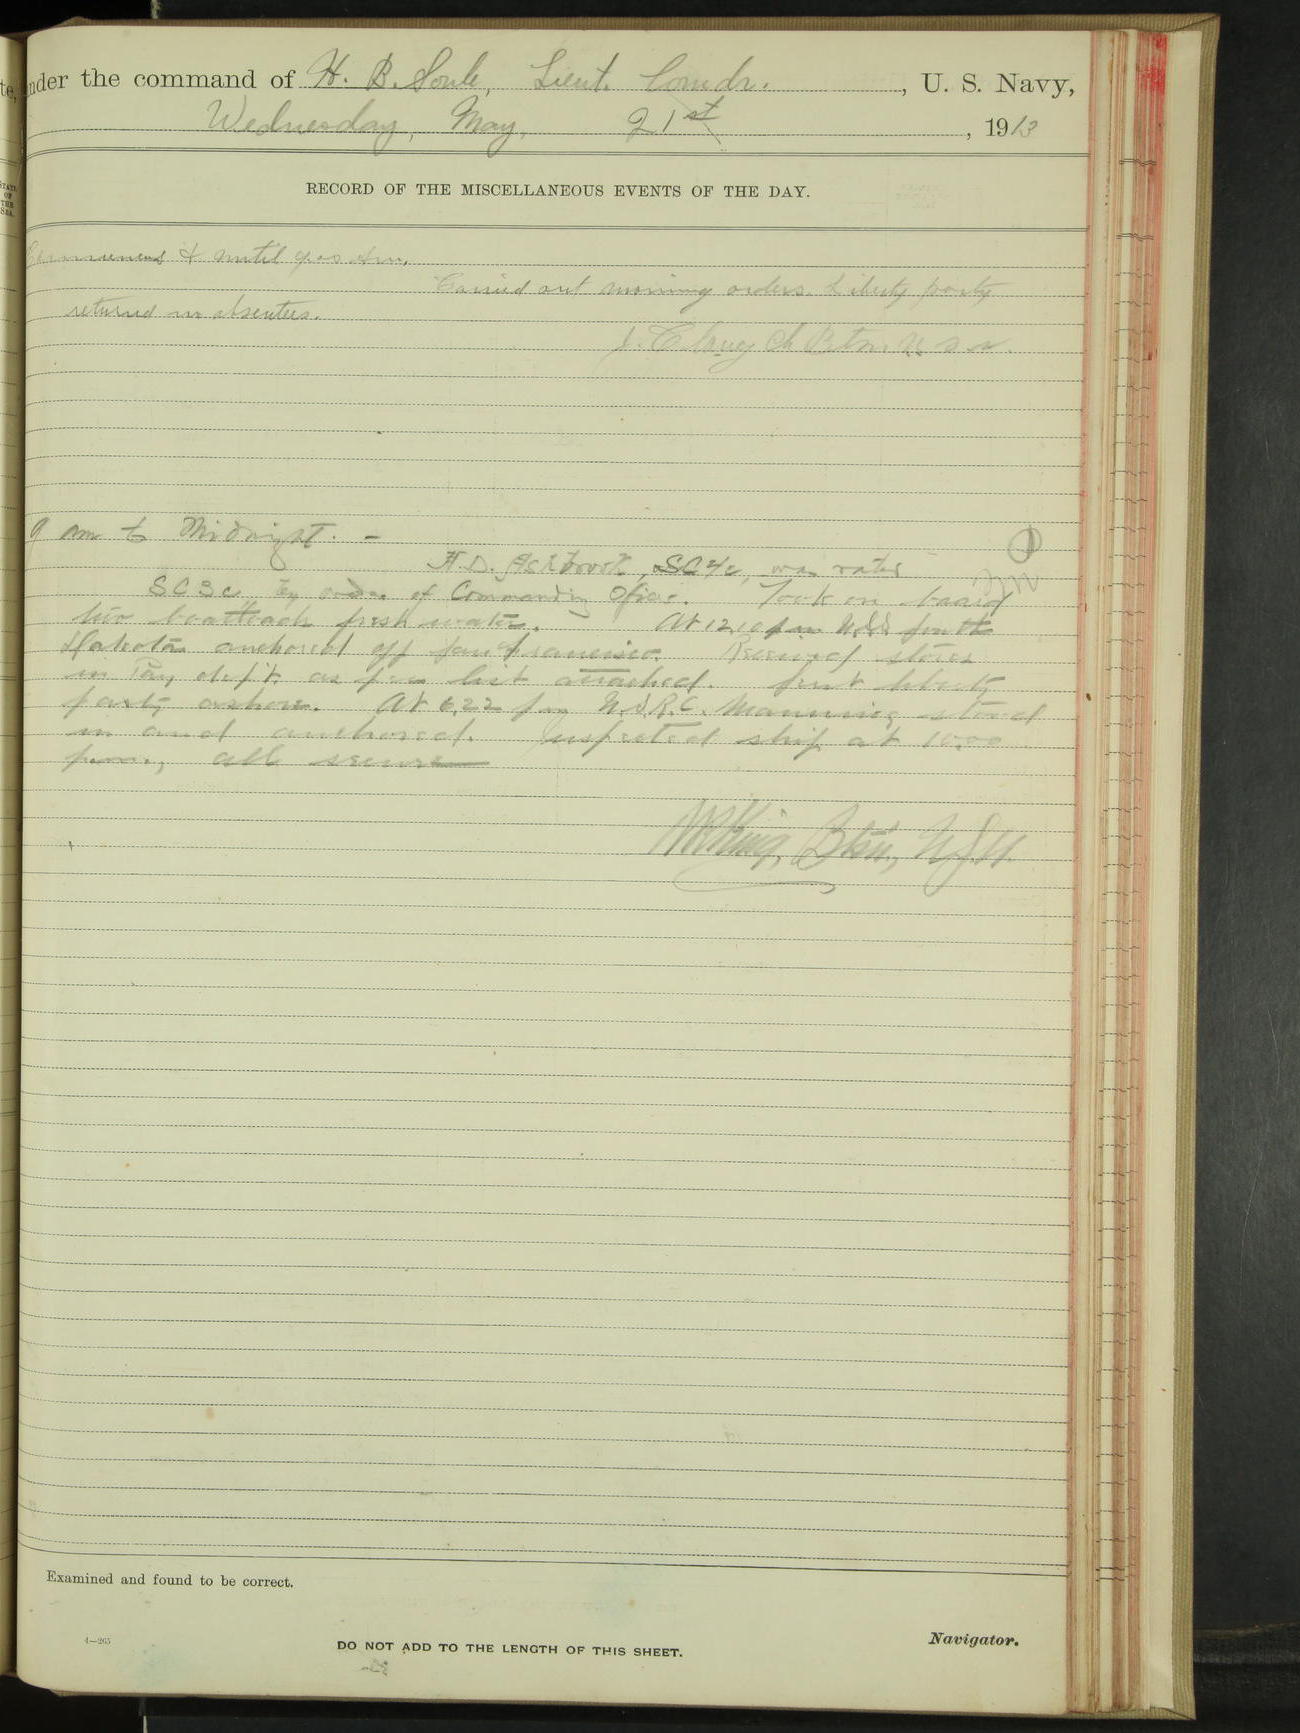 under the command of H. B. Soule, Lieut. Comdr. , U. S. Navy,
Wednesday, May, 21st , 1913
RECORD OF THE MISCELLANEOUS EVENTS OF THE DAY.
Commences & until 9:00 am.
Carried out morning orders. Liberty party
returned no absentees.
Ch Btsn. U S N.
9 am to Midnight. –
H. D. Ashbrook, SC4c, was rated
SC3c by order of Commanding Officer. Took on board
two boatloads fresh water. At 12.10 pm U.S.S. South
Dakota anchored off San Francisco. Received stores
in Pay dep't. as per list attached. Sent liberty
party ashore. At 6.22 pm U.S.R.C. Manning stood
in and anchored. Inspected ship at 10.00
p.m., all secure
King, Btsn., U.S.N.
Examined and found to be correct.
4—265
DO NOT ADD TO THE LENGTH OF THIS SHEET.
Navigator.